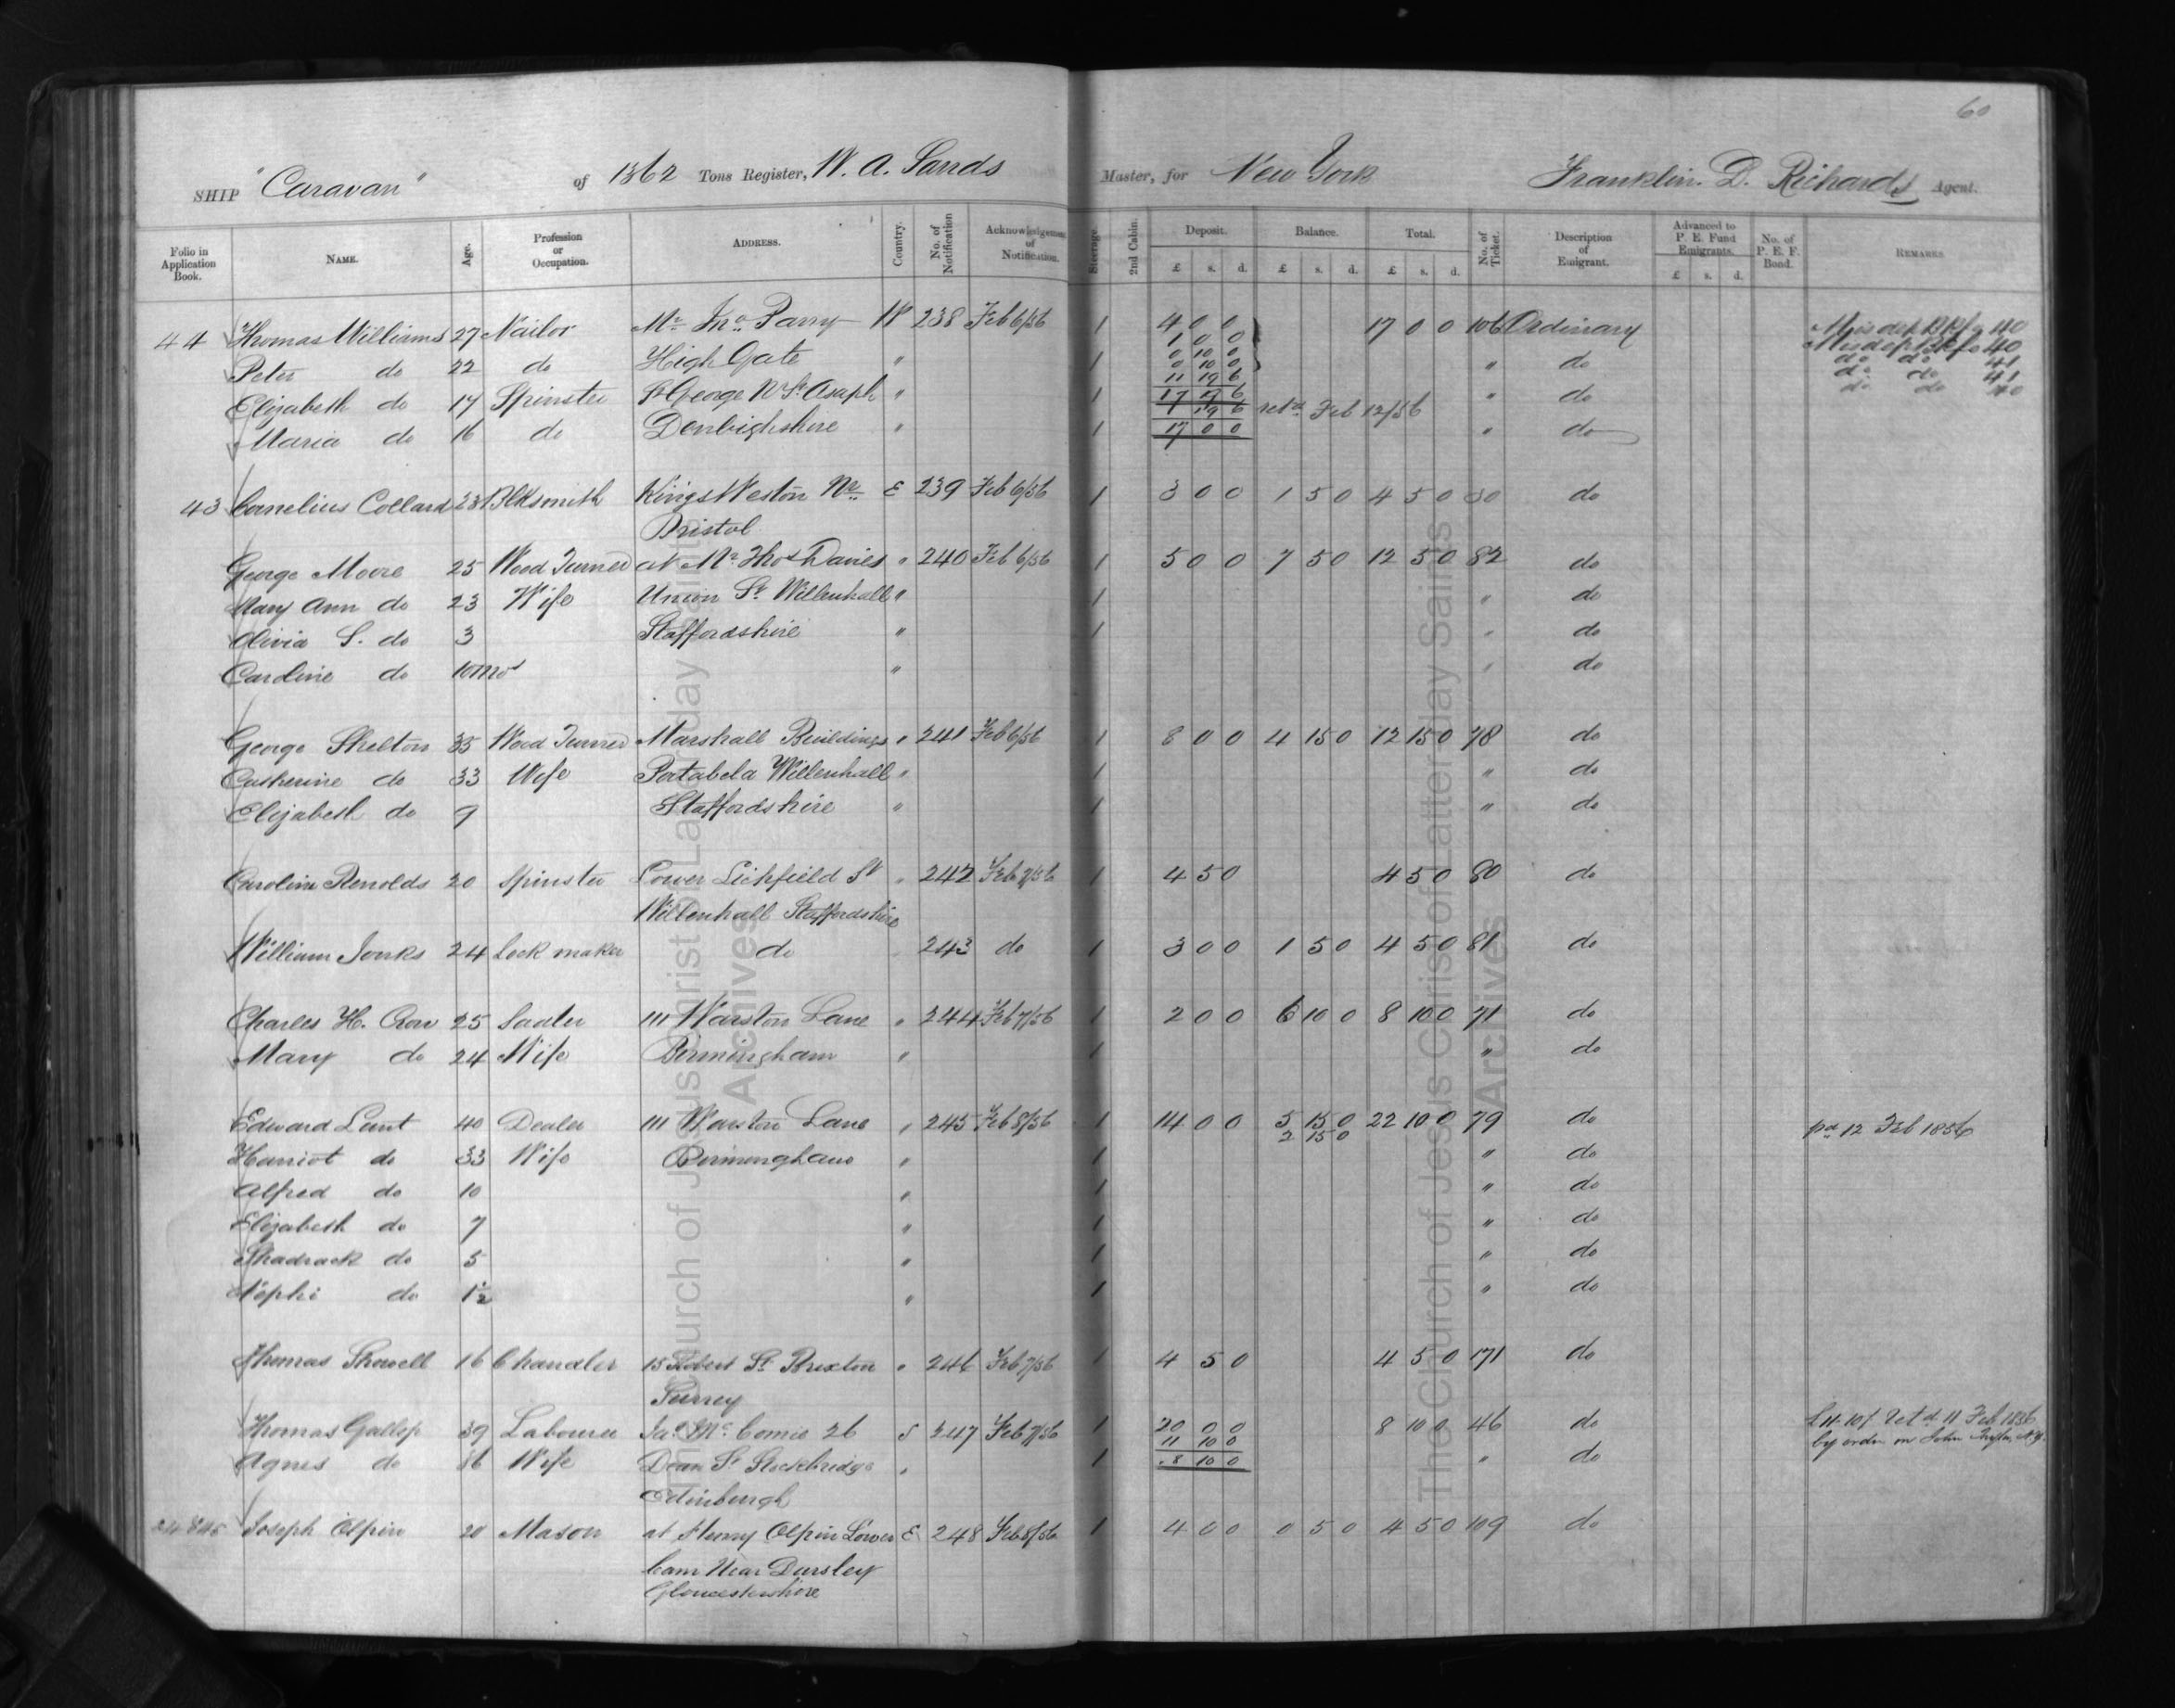 60
SHIP "Caravan" of 1362 Tons Register, W. A. Sands Master, for New York Franklin. D. Richards Agent.
Folio in Application Book. NAME. Age. Profession or Occupation. ADDRESS. Country. No. of Notification Acknowledgement of Notification. Steerage. 2nd Cabin. Deposit. £ s. d. Balance. £ s. d. Total. £ s. d. No. of Ticket. Description of Emigrant. Advanced to P. E. Fund Emigrants. £ s. d. No. of P. E. F. Bond. REMARKS
44 Thomas Williams 27 Nailor Mr. Jno. Parry W 238 Feb 6/56 1 4 0 0 17 0 0 106 Ordinary
1 0 0
Peter do 22 do High Gate " 1 0 10 0 " do
0 10 0
11 19 6
Elizabeth do 17 Spinster St George Nr St Asaph " 1 17 19 6 " do
19 6 retd Feb 12/56
Maria do 16 do Denbighshire " 1 17 0 0 " do
43 Cornelius Collard 23 Blksmith Kings Weston Nr. E 239 Feb 6/56 1 3 0 0 1 5 0 4 5 0 30 do
Bristol
George Moore 25 Wood Turner at Mr Thos Davies " 240 Feb 6/56 1 5 0 0 7 5 0 12 5 0 82 do
Mary Ann do 23 Wife Union St. Willenhall " 1 " do
Olivia S. do 3 Staffordshire " 1 " do
Caroline do 10 mos " " do
George Shelton 35 Wood Turner Marshall Buildings " 241 Feb 6/56 1 8 0 0 4 15 0 12 15 0 78 do
Catherine do 33 Wife Portabela Willenhall " 1 " do
Elizabeth do 9 Staffordshire " 1 " do
Caroline Renolds 20 Spinster Lower Lichfield St " 242 Feb 7/56 1 4 5 0 4 5 0 80 do
Willenhall Staffordshire
William Jonks 24 Lock maker do 243 do 1 3 0 0 1 5 0 4 5 0 81 do
Charles H. Crow 25 Sadler 111 Warston Lane " 244 Feb 7/56 1 2 0 0 6 10 0 8 10 0 71 do
Mary do 24 Wife Birmingham " 1 " do
Edward Lunt 40 Dealer 111 Warston Lane " 245 Feb 8/56 1 14 0 0 5 15 0 22 10 0 79 do pd 12 Feb 1856
2 15 0
Harriot do 33 Wife Birmingham " 1 " do
Alfred do 10 " 1 " do
Elizabeth do 7 " 1 " do
Shadrack do 5 " 1 " do
Nephi do 1½ " 1 " do
Thomas Showell 16 Chandler 15 Robert St. Brixton " 246 Feb 7/56 1 4 5 0 4 5 0 171 do
Surrey
Thomas Gallop 39 Labourer Jas. Mc Comie 26 S 247 Feb 7/56 1 20 0 0 8 10 0 46 do £11. 10/ Retd. 11 Feb 1856
11 10 0 by order on John
Agnes do 36 Wife Dean St Stockbridge " 1 8 10 0 " do
Edinburgh
Joseph Olpin 20 Mason at Henry Olpin Lower E 248 Feb 8/56 1 4 0 0 0 5 0 4 5 0 109 do
Cam Near Dursley
Gloucestershire
The Church of Jesus Christ of Latter-day Saints
Archives
The Church of Jesus Christ of Latter-day Saints
Archives